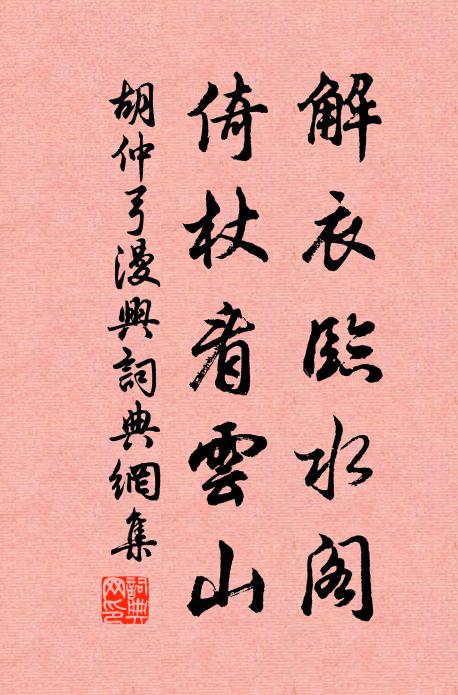 解衣臨水閣
倚杖看雲山
胡仲弓漫興詞典網集
詞典网印